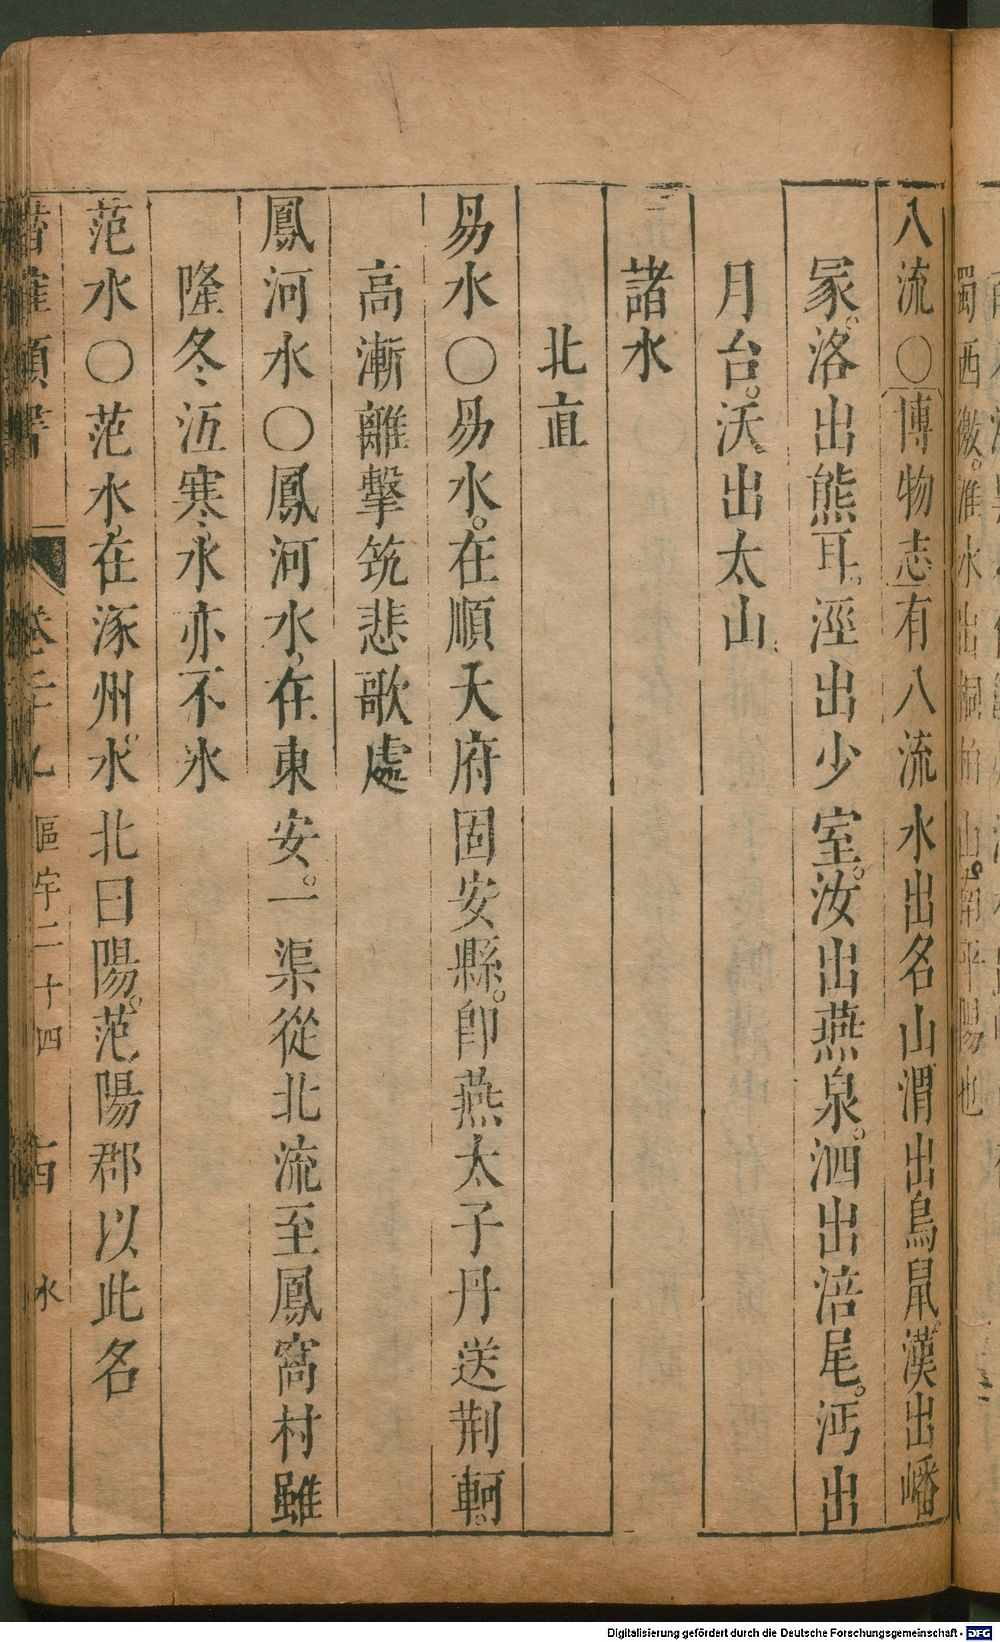 八流○博物志有八流水出名山渭出鳥鼠漢出嶓
冢。洛出熊耳。涇出少室。汝出燕泉。泗出涪尾。沔出
月台。沃出太山、
諸水
北直
易水○易水。在順天府固安縣。卽燕太子丹送荆軻。
高漸離擊筑悲歌處
鳳河水○鳳河水、在東安。一渠從北流至鳳窩村雖
隆冬、沍寒、水亦不冰
范水○范水、在涿州水。北曰陽。范陽郡以此名
類書 卷二十九 區宇二十四 水
Digitalisierung gefördert durch die Deutsche Forschungsgemeinschaft - DFG